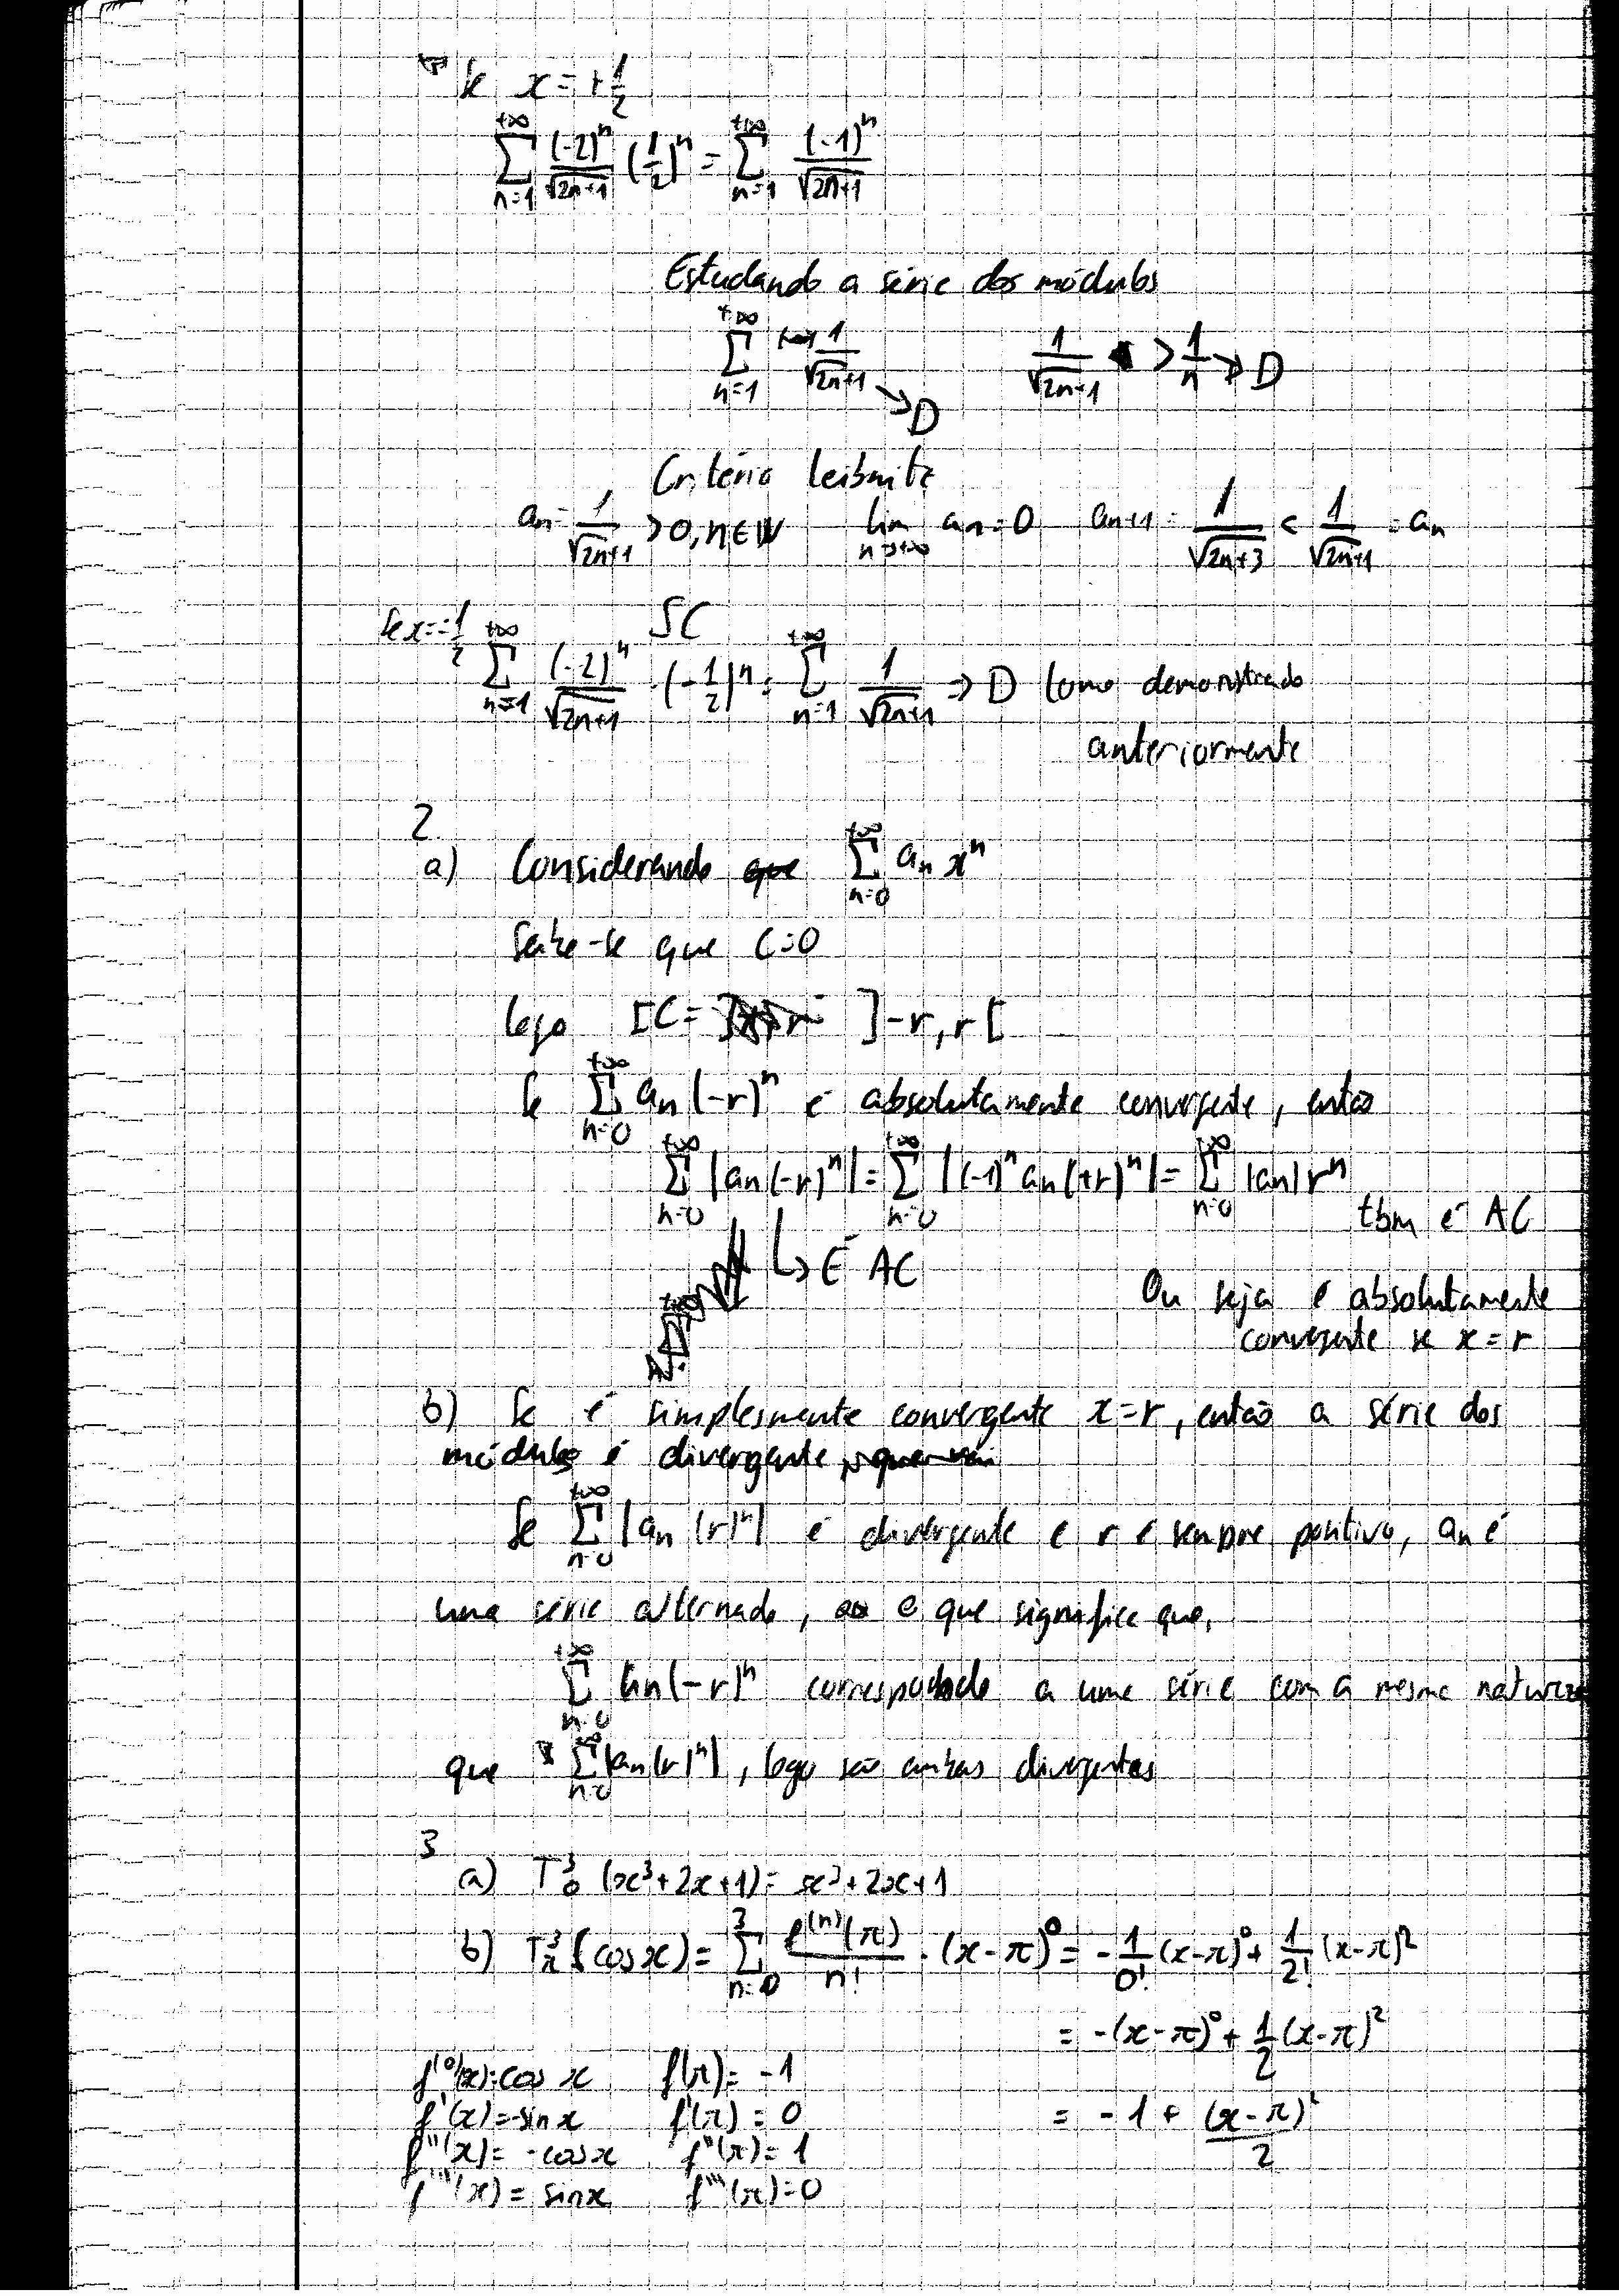 Se x = +1/2
+∞∑n=1 (-2)^n/√(2n+1) (1/2)^n = +∞∑n=1 (-1)^n/√(2n+1)
Estudando a série dos módulos
+∞∑n=1 1/√(2n+1) → D 1/√(2n+1) > 1/n → D
Critério leibnitz
an = 1/√(2n+1) > 0, n∈ℕ lim n→+∞ an = 0 an+1 = 1/√(2n+3) < 1/√(2n+1) = an
SC
Se x = -1/2 +∞∑n=1 (-2)^n/√(2n+1) · (-1/2)^n = +∞∑n=1 1/√(2n+1) → D Como demonstrado
anteriormente
2.
a) Considerando +∞∑n=0 an x^n
Sabe-se que C=0
logo IC = ]-r, r[
Se +∞∑n=0 an (-r)^n é absolutamente convergente, então
+∞∑n=0 |an (-r)^n| = +∞∑n=0 |(-1)^n an (+r)^n| = +∞∑n=0 |an| r^n
tbm é AC
↳ É AC
Ou seja é absolutamente
convergente se x = r
b) Se é simplesmente convergente x=r, então a série dos
módulos é divergente
Se +∞∑n=0 |an (r)^n| é divergente e r é sempre positivo, an é
uma série alternada, o que significa que,
+∞∑n=0 an(-r)^n a uma série com a mesma natureza
que +∞∑n=0 |an(r)^n|, logo são ambas divergentes
3
a) T³₀ (x³+2x+1) = x³+2x+1
b) T³π (cos x) = 3∑n=0 f^(n)(π)/n! · (x-π)^0 = -1/0! (x-π)^0 + 1/2! (x-π)²
= -(x-π)^0 + 1/2 (x-π)²
f^(0)(x) = cos x f(π) = -1
f'(x) = -sin x f'(π) = 0 = -1 + (x-π)²/2
f''(x) = -cos x f''(π) = 1
f'''(x) = sin x f'''(π) = 0